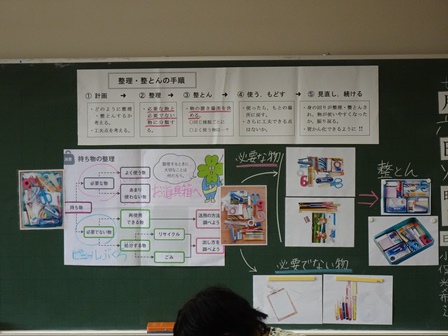 整理・整とんの手順
① 計画 → ② 整理 → ③ 整とん → ④ 使う、もどす → ⑤ 見直し、続ける
・どのように整理
・整とんするか
考える。
・工夫点を考える。
・必要な物と
必要でない
物に分類す
る。
・物の置き場所を決
める。
・使ったら、もとの場
所に戻す。
・さらに工夫できる点
はないか。
持ち物の整理
持ち物
必要な物
よく使う物
あまり
使わない物
必要でない物
再使用
できる物
処分する物
リサイクル
ごみ
活用の方法を
調べよう
出し方を
調べよう
お道具箱へ
ビニルぶくろ
必要な物
必要でない物
整とん